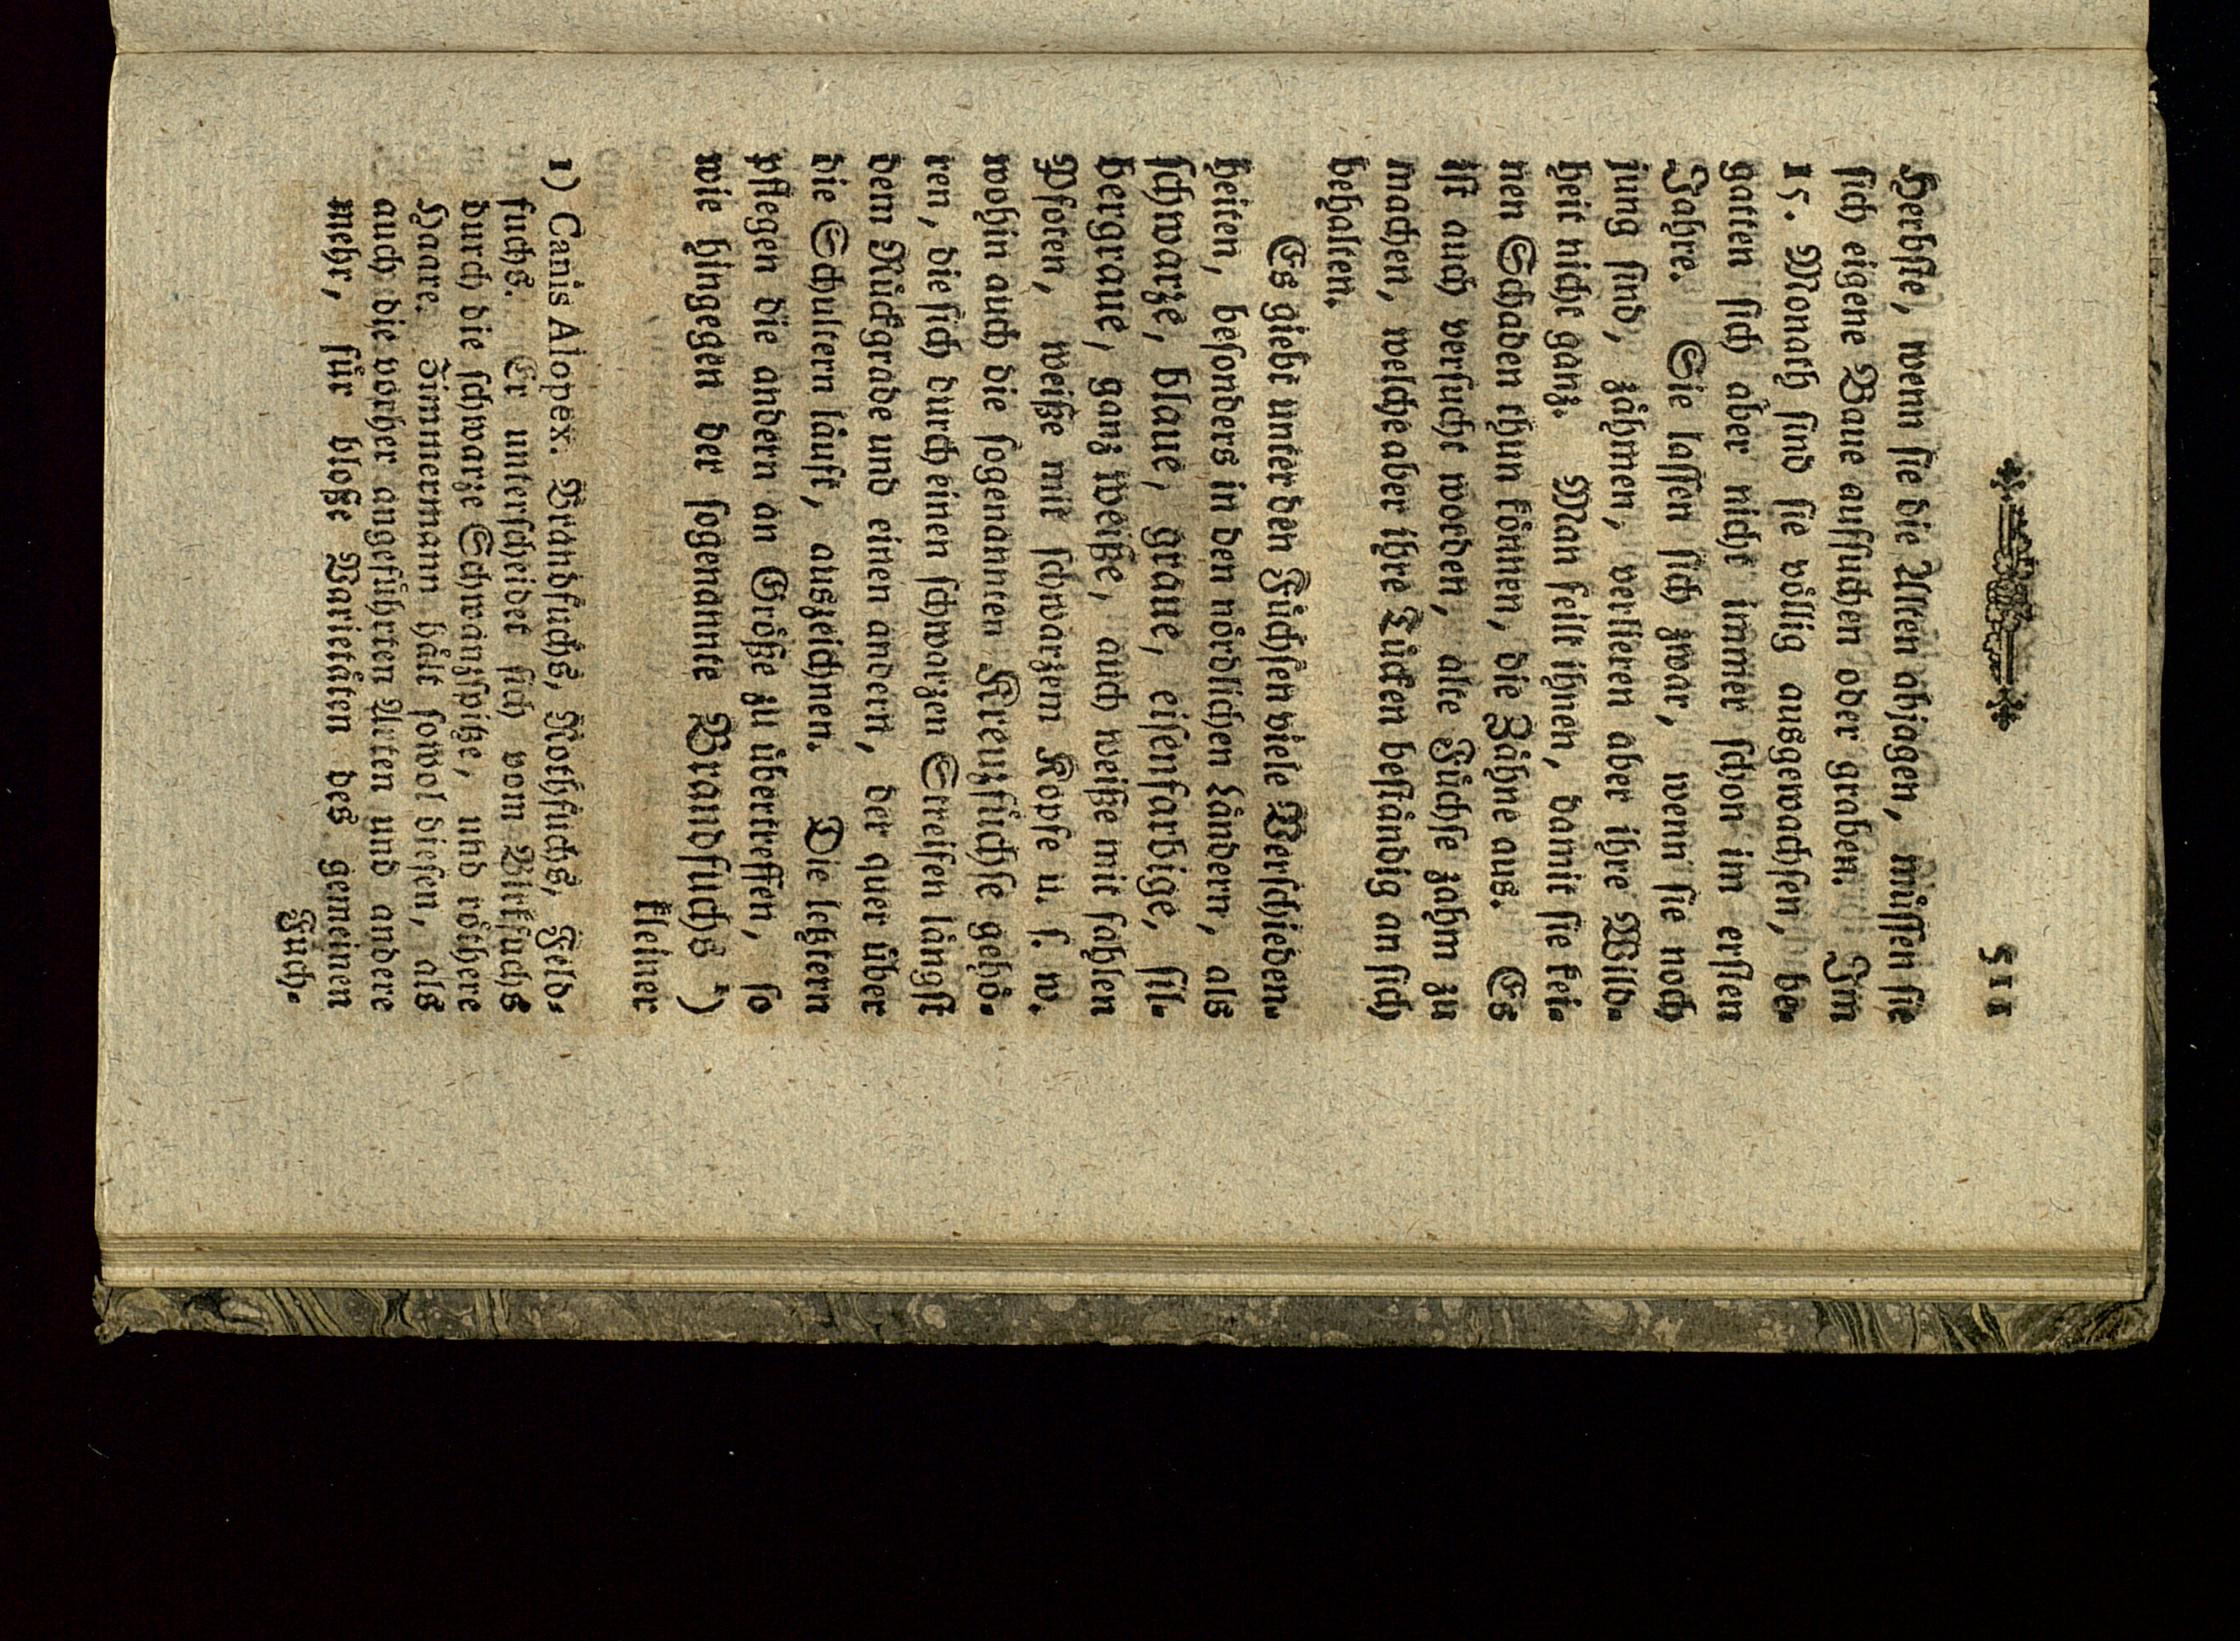 511
Herbſte, wenn ſie die Alten abjagen, müſſen ſie
ſich eigene Baue aufſuchen oder graben. Im
15. Monath ſind ſie völlig ausgewachſen, be-
gatten ſich aber nicht immer ſchon im erſten
Jahre. Sie laſſen ſich zwar, wenn ſie noch
jung ſind, zähmen, verlieren aber ihre Wild-
heit nicht ganz. Man feilt ihnen, damit ſie kei-
nen Schaden thun können, die Zähne aus. Es
iſt auch verſucht worden, alte Füchſe zahm zu
machen, welche aber ihre Tücken beſtändig an ſich
behalten.
Es giebt unter den Füchſen viele Verſchieden-
heiten, beſonders in den nördlichen Ländern, als
ſchwarze, blaue, graue, eiſenfarbige, ſil-
bergraue, ganz weiße, auch weiße mit fahlen
Pfoten, weiße mit ſchwarzem Kopfe u. ſ. w.
wohin auch die ſogenannten Kreuzfüchſe gehö-
ren, die ſich durch einen ſchwarzen Streifen längſt
dem Rückgrade und einen andern, der quer über
die Schultern läuft, auszeichnen. Die letztern
pflegen die andern an Größe zu übertreffen, ſo
wie hingegen der ſogenannte Brandfuchs ¹)
kleiner
1) Canis Alopex. Brandfuchs, Rothfuchs, Feld-
fuchs. Er unterſcheidet ſich vom Birkfuchs
durch die ſchwarze Schwanzſpitze, und röthere
Haare. Zimmermann hält ſowol dieſen, als
auch die vorher angeführten Arten und andere
mehr, für bloße Varietäten des gemeinen
Fuch-